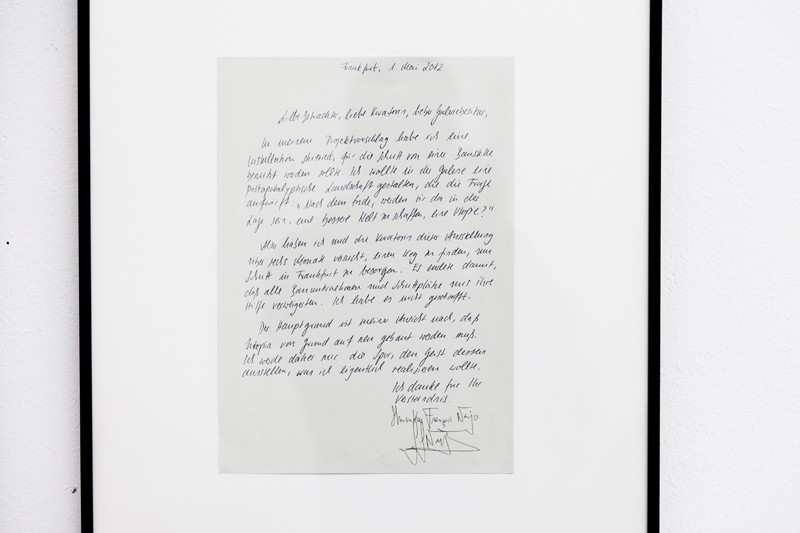 Frankfurt, 1. Mai 2012
liebe Kuratorin, lieber Galeriebesitzer,
In meinem Projektvorschlag habe ich eine
Installation skizziert, für die Schutt von einer Baustelle
gebraucht werden sollte. Ich wollte in der Galerie eine
postapokalyptische Landschaft gestalten, die die Frage
aufwirft: „Nach dem Ende, werden wir da in der
Lage sein, eine bessere Welt zu schaffen, eine Utopie?"
Nun haben ich und die Kuratorin dieser Ausstellung
über sechs Monate versucht, einen Weg zu finden, um
Schutt in Frankfurt zu besorgen. Es endete damit,
daß alle Bauunternehmen und Schuttplätze uns ihre
Hilfe verweigerten. Ich habe es nicht geschafft.
Der Hauptgrund ist meiner Ansicht nach, daß
Utopia von Grund auf neu gebaut werden muß.
Ich werde daher nur die Spur, den Geist dessen
ausstellen, was ich eigentlich realisieren wollte.
Ich danke für Ihr
Verständnis.
François